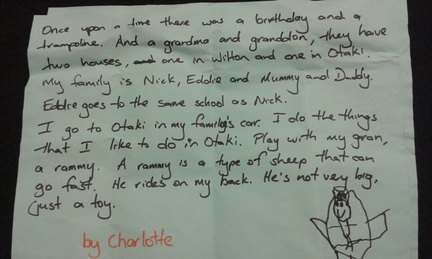 Once upon a time there was a birthday and a
trampoline. And a grandma and granddon, they have
two houses, one in Wilton and one in Otaki.
My family is Nick, Eddie and Mummy and Daddy.
Eddie goes to the same school as Nick.
I go to Otaki in my family's car. I do the things
that I like to do in Otaki. Play with my gran,
a rammy. A rammy is a type of sheep that can
go fast. He rides on my back. He's not very big,
just a toy.
by Charlotte